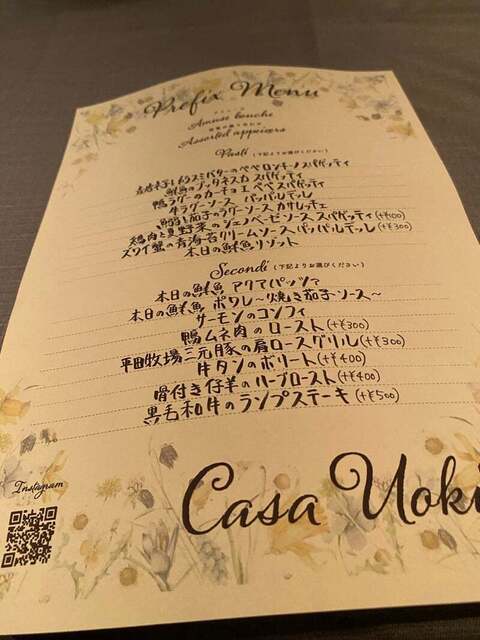 Prefix Menu
Amuse bouche
Assorted appizers
Pasti (下記よりお選びください)
青唐辛子とカラスミバターのペペロンチーノスパゲッティ
鮮魚のプッタネスカ スパゲッティ
鴨ラグーのカーチョエペペスパゲッティ
牛ラグーソース パッパルデッレ
鰯と茄子のラグーソースカサレッチェ
鶏肉と夏野菜のジェノベーゼソーススパゲッティ(+¥400)
ズワイ蟹の青海苔クリームソースパッパルデッレ(+¥300)
本日の鮮魚リゾット
Secondi (下記よりお選びください)
本日の鮮魚 アクアパッツァ
本日の鮮魚 ポワレ〜焼き茄子ソース〜
サーモンのコンフィ
鴨ムネ肉のロースト(+¥300)
平田牧場三元豚の肩ロースグリル(+¥300)
牛タンのボリート(+¥400)
骨付き仔羊のハーブロースト(+¥400)
黒毛和牛のランプステーキ(+¥500)
Instagram
Casa Uoki